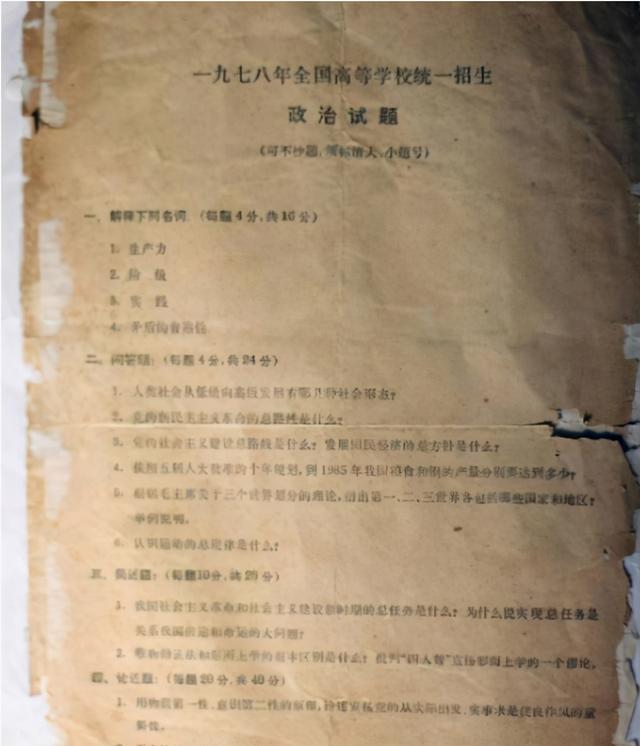 一九七八年全国高等学校统一招生
政治试题
（可不抄题，须标清大、小题号）
一、解释下列名词（每题4分，共16分）
1. 生产力
2. 阶 级
3. 实 践
4. 矛盾的普遍性
二、问答题：（每题4分，共24分）
1. 人类社会从低级向高级发展有哪几种社会形态？
2. 党的新民主主义革命的总路线是什么？
3. 党的社会主义建设总路线是什么？发展国民经济的总方针是什么？
4. 按照五届人大批准的十年规划，到1985年我国粮食和钢的产量分别要达到多少？
5. 根据毛主席关于三个世界划分的理论，指出第一、二、三世界各包括哪些国家和地区？
举例说明。
6. 认识运动的总规律是什么？
三、简述题：（每题10分，共20分）
1. 我国社会主义革命和社会主义建设新时期的总任务是什么？为什么说实现总任务是
关系我国前途和命运的大问题？
2. 唯物辩证法和形而上学的根本区别是什么？批判“四人帮”宣扬形而上学的一个谬论。
四、论述题：（每题20分，共40分）
1. 用物质第一性、意识第二性的原理，论述发扬党的从实际出发、实事求是优良作风的重
要性。